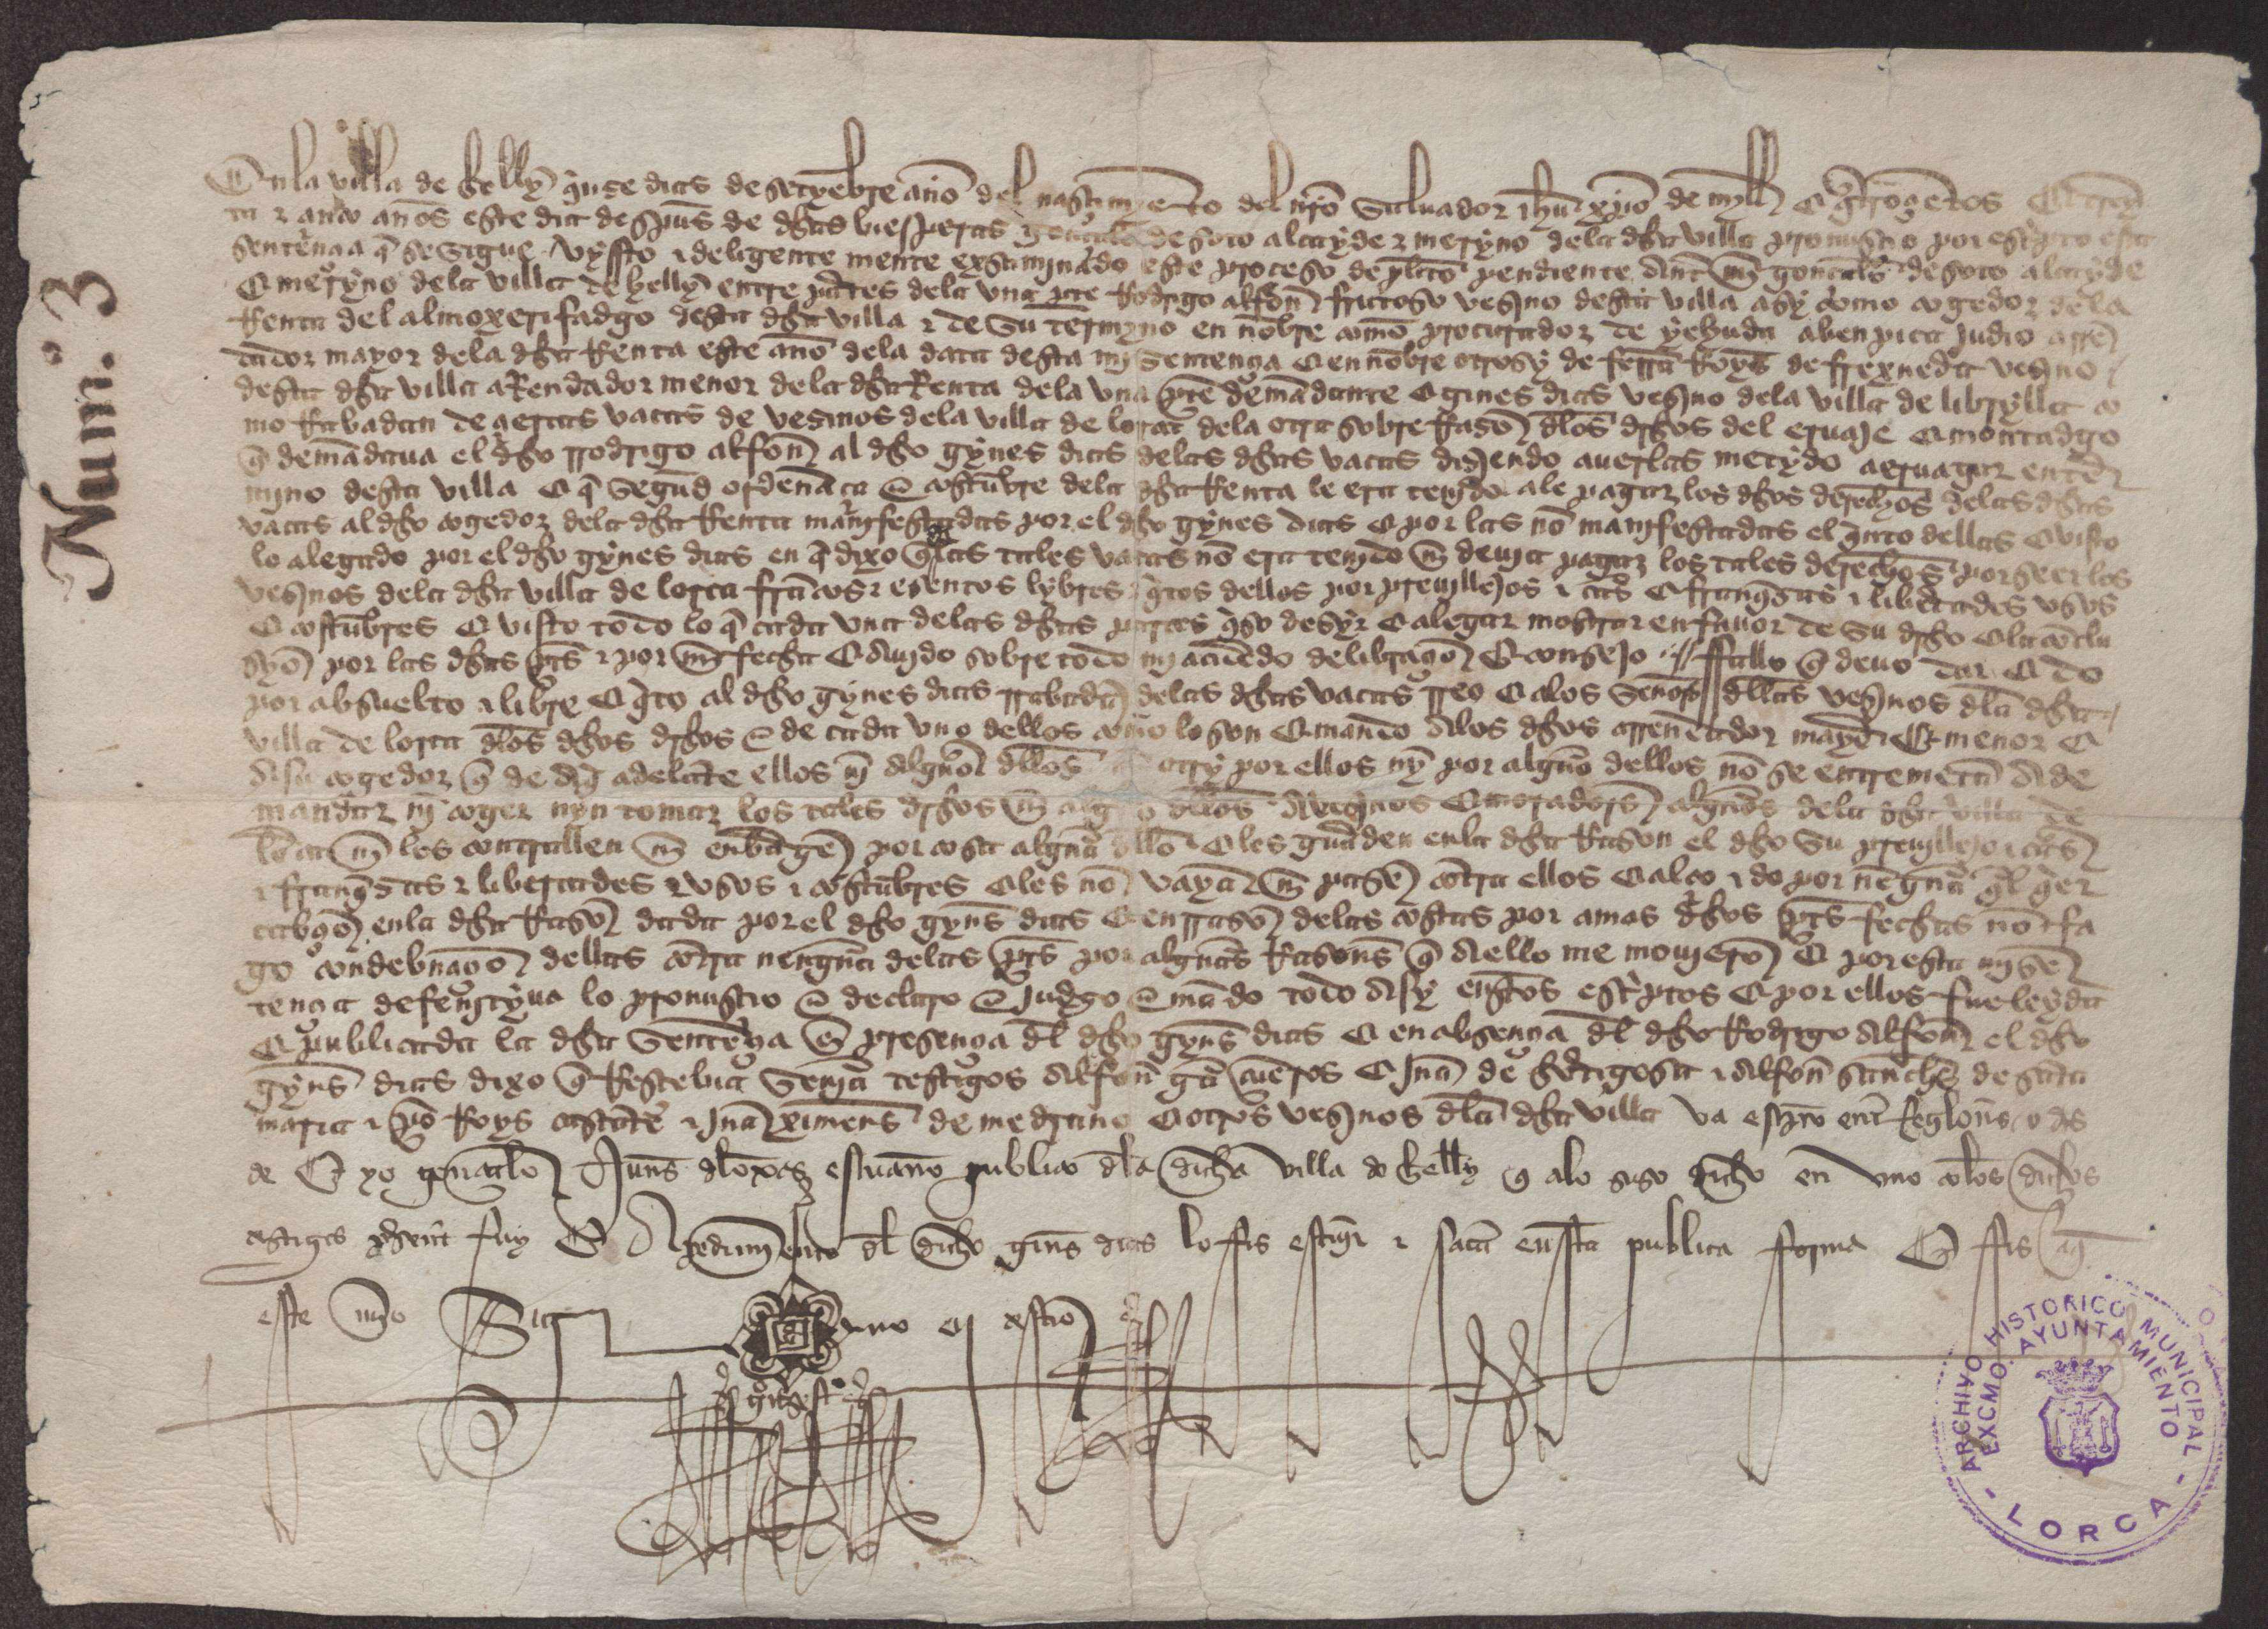 Num. 3
En la villa de helly quinze dias de setyenbre año del nasçimyento del nro saluador ihu xpo de mill e quatroçientos e treyn
ta e çinco años este dia despues de dichas biesperas gonçalo de soto alcayde e meryno dela dicha villa pronunçio por escripto esta
sentençia q se sigue vysto e deligente mente exsaminado este proceso de pleito pendiente ante mi gonçalo de soto alcayde
e meryno dela villa de helly entre partes dela vna pte Rodrigo alfon fructoso vesino desta villa asy como cogedor dela
Renta del almoxerifadgo desta dicha villa e de su termino en nonbre como procurador de yehuda aben pica judio arren
dador mayor dela dicha Renta este año dela data desta mi sentençia e en nonbre otrosy de ferran Royz de frexneda vesino
desta dicha villa aRendador menor dela dicha Renta dela vna pte demandante e gines dias vesino dela villa de librylla co
mo Rabadan de çiertas vacas de vesinos dela villa de lorca dela otra sobre Rason delos drechos del eruaje e montadgo
q demandaua el dicho rrodrigo alfon al dicho gynes dias delas dichas vacas disiendo auerlas metydo a eruajar en ter
mino desta villa e q segund ordenança e costunbre dela dicha Renta le era tenido a le pagar los dichos derechos delas dichas
vacas al dicho cogedor dela dicha Renta manifestadas por el dicho gynes dias e por las no manifestadas el quinto dellas e visto
lo alegado por el dicho gynes dias en q dixo q las tales vacas no era tenido ni deuia pagar los tales derechos por ser los
vesinos dela dicha villa de lorca francos e esentos lybres quitos dellos por preuillejos e cartas e franquesas e libertades vsos
e costunbres e visto todo lo q cada vna delas dichas partes quiso desyr e alegar mostrar en fauor de su drecho e la conclu
syon por las dichas ptes e por mi fecha e auido sobre todo mi acuerdo deliberaçion e consejo // ffallo q deuo dar e do
por absuelto e libre e quito al dicho gynes dias rrabadan delas dichas vacas rreo e alos señores dellas vesinos dela dicha
villa de lorca delos dichos drechos e de cada vno dellos como lo son e mando alos dichos arrendador mayor e menor e
a su cogedor q de aqui adelante ellos ni alguno dellos ni otry por ellos ny por alguno dellos no se entremetan a de
mandar ni coger nyn tomar los tales drechos ni alguno dellos a vesinos e moradores algunos dela dicha villa de
lorca ni les contrallen ni enbarguen por cosa alguna dello e les guarden en la dicha Rason el dicho su preuillejo e cartas
e franquesas e libertades e vsos e costunbres e les no vayan ni pasen contra ellos e alço e do por ninguna qualquier
cabçion en la dicha Rason dada por el dicho gynes dias e en rrason delas costas por amas dichas ptes fechas no fa
go condebnaçion dellas contra ninguna delas ptes por algunas Rasones q a ello me mouieron e por esta mi sen
tençia defenityua lo pronunçio e declaro e judgo e mando todo asy en estos escriptos e por ellos fue leyda
e publicada la dicha sentençia en presençia del dicho gynes dias e en absençia del dicho Rodrigo alfon el dicho
gynes dias dixo q Resçebia sentençia testigos alfon gra cueros e Juan de hortigosa e alfon sanches de santa
maria e po Royz castante e Juan ximenes de medrano e otros vesinos dela dicha villa va escripto entre Reglones o dis
de E yo gonçalo nunes escriuano publico dela dicha villa de helly q alo suso dicho en vno con los dichos
testigos presente fuy E a pedimiento del dicho gines dias lo fis escreuir e sacar en esta publica forma E fis aqui
este mio Sig no en testimonio
ARCHIVO HISTORICO MUNICIPAL
EXCMO. AYUNTAMIENTO
- LORCA -